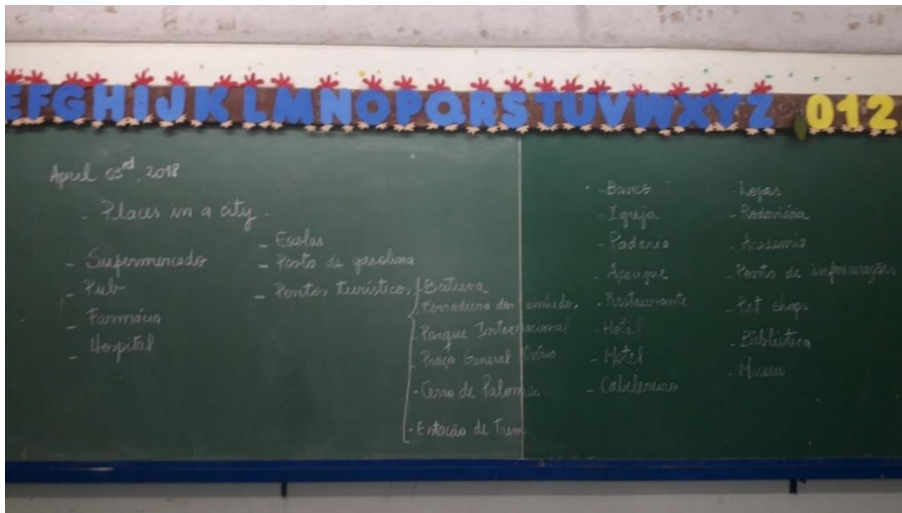 EFGHIJKLMNOPQRSTUVWXYZ 012
April 03rd, 2018
. Places in a city .
- Supermercado
- Pub
- Farmácia
- Hospital
- Escolas
- Posto de gasolina
- Pontos turísticos.
Ferradura dos vinhedos.
- Parque Internacional
- Praça General Osório
- Cerro de Palomas.
- Estação de Trem
- Banco
- Igreja
- Padaria
- Açougue
- Restaurante
- Hotel
- Motel
- Cabelereiro
- Lojas
- Rodoviária
- Academia
- Ponto de informações
- Pet Shops
- Biblioteca
- Museu